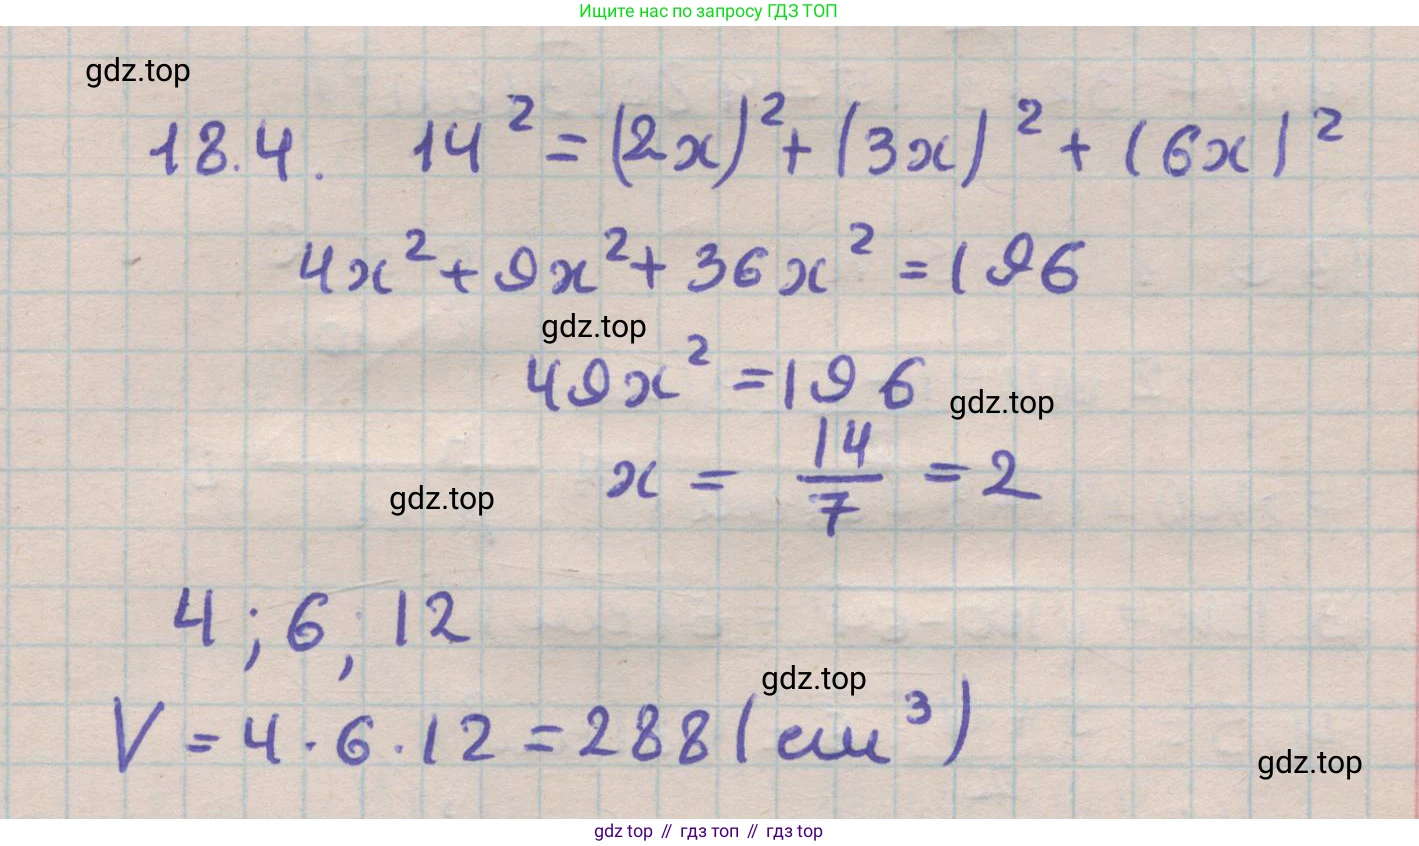 Ищите нас по запросу ГДЗ ТОП
gdz.top
18.4. 14² = (2x)² + (3x)² + (6x)²
4x² + 9x² + 36x² = 196
gdz.top
49x² = 196
gdz.top
x = 14/7 = 2
gdz.top
4; 6; 12
gdz.top
V = 4 · 6 · 12 = 288 (см³)
gdz.top
gdz top // гдз топ // гдз top